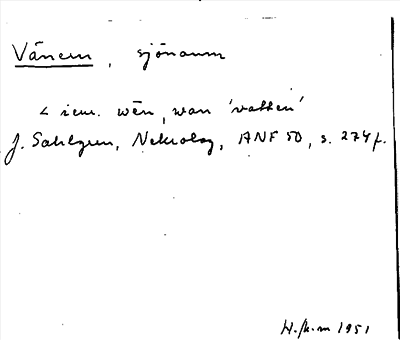 Vänern, sjönamn
< ieur. wēn, wan 'vatten'
J. Sahlgren, Nekrolog, ANF 50, s. 274 f.
1951